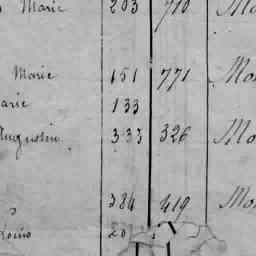 Marie 203 710 Mo
Marie 151 771 Mo
arie 133
Augustin 333 326 Mo
384 419 Mo
Louis 20